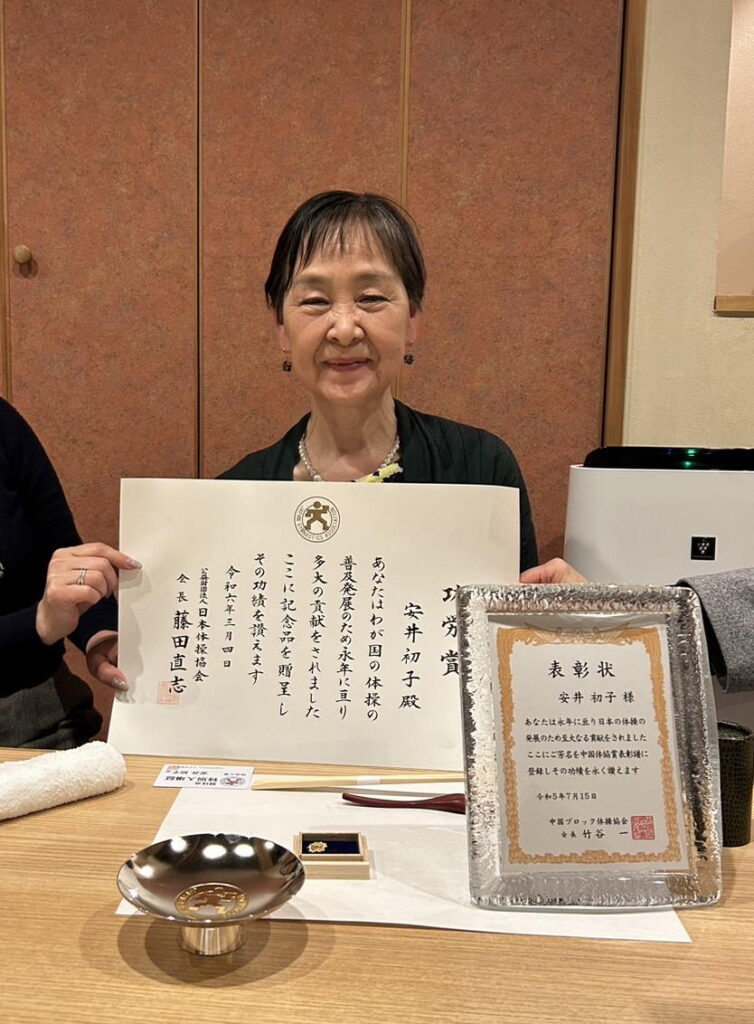 功労賞
安井初子殿
あなたはわが国の体操の
普及発展のため永年に亘り
多大の貢献をされました
ここに記念品を贈呈し
その功績を讃えます
令和六年三月四日
公益財団法人日本体操協会
会長 藤田直志
表彰状
安井 初子 様
あなたは永年に亘り日本の体操の
発展のため至大なる貢献をされました
ここにご芳名を中国体協賞表彰譜に
登録しその功績を永く讃えます
令和5年7月15日
中国ブロック体操協会
会長 竹谷 一
特別入場証